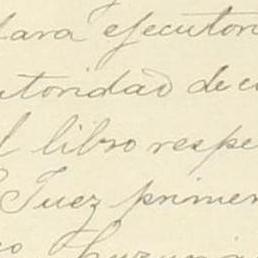 lara ejecutori
utoridad de c
l libro respe
Juez primer